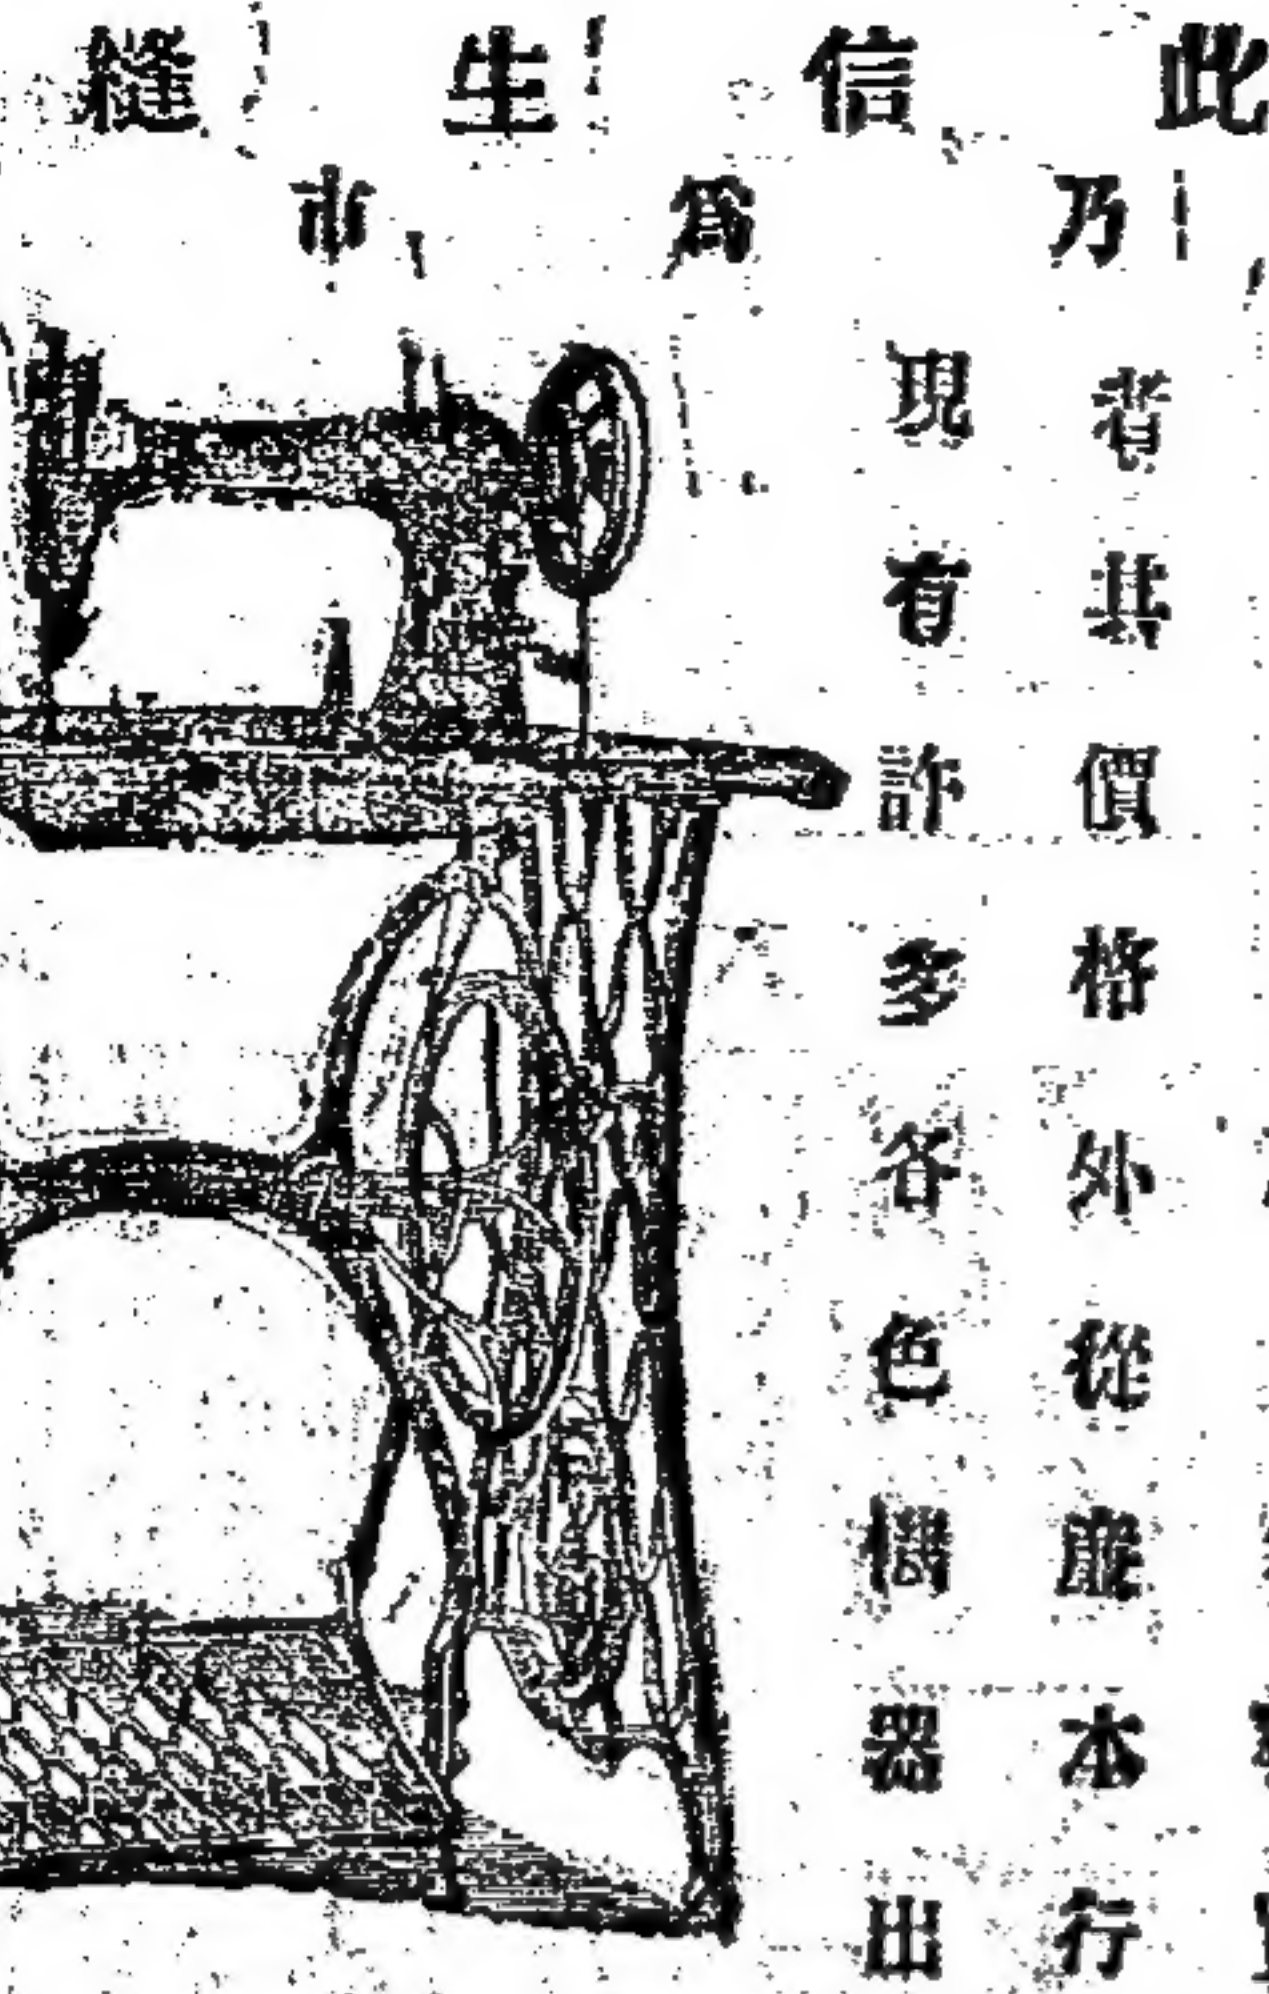 此信生縫
乃為市
者其價格外從廉本行
現有許多各色機器出